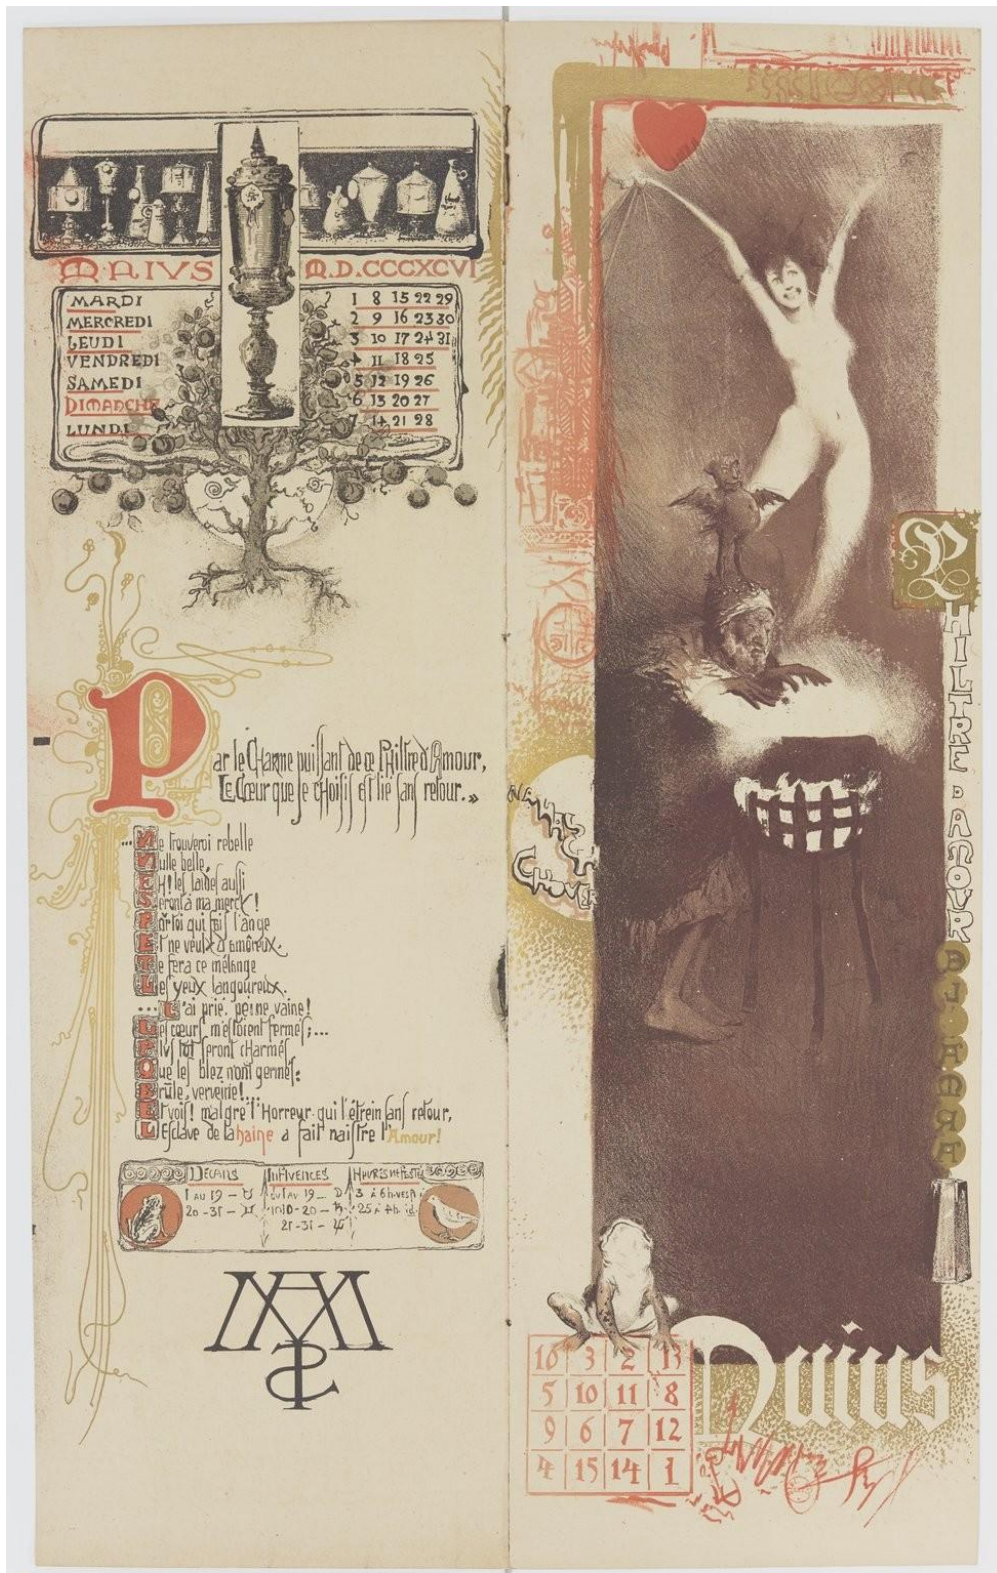 MAIVS M.D.CCCXCVI
MARDI 1 8 15 22 29
MERCREDI 2 9 16 23 30
JEUDI 3 10 17 24 31
VENDREDI 4 11 18 25
SAMEDI 5 12 19 26
DIMANCHE 6 13 20 27
LUNDI 7 14 21 28
Par le Charme puissant de ce Philtre d'Amour,
Le Cœur que je choisis est lié sans retour. »
... Ne trouveroi rebelle
Nulle belle,
EH! les laides aussi
Seront à ma mercy!
Portoi qui fais l'ange
Et ne veulx d'amoureux,
Te fera ce mélange
Les yeux langoureux.
... L'ai prié, peine vaine!
Les cœurs m'estoient fermés;...
Plus tôt seront charmés
Que les blez n'ont germés:
Brûle, verveine!...
Et vois! malgré l'Horreur qui l'étrein sans retour,
L'Esclave de la haine a fait naistre l'Amour!
DECANS INFLVENCES
1 AU 19 – ♉
20 - 31 – ♊ 10-20 – ♄
21-31 – ♃
PHILTRE D AMOUR
DJ AMRA
16 3 2 13
5 10 11 8
9 6 7 12
4 15 14 1
Maius